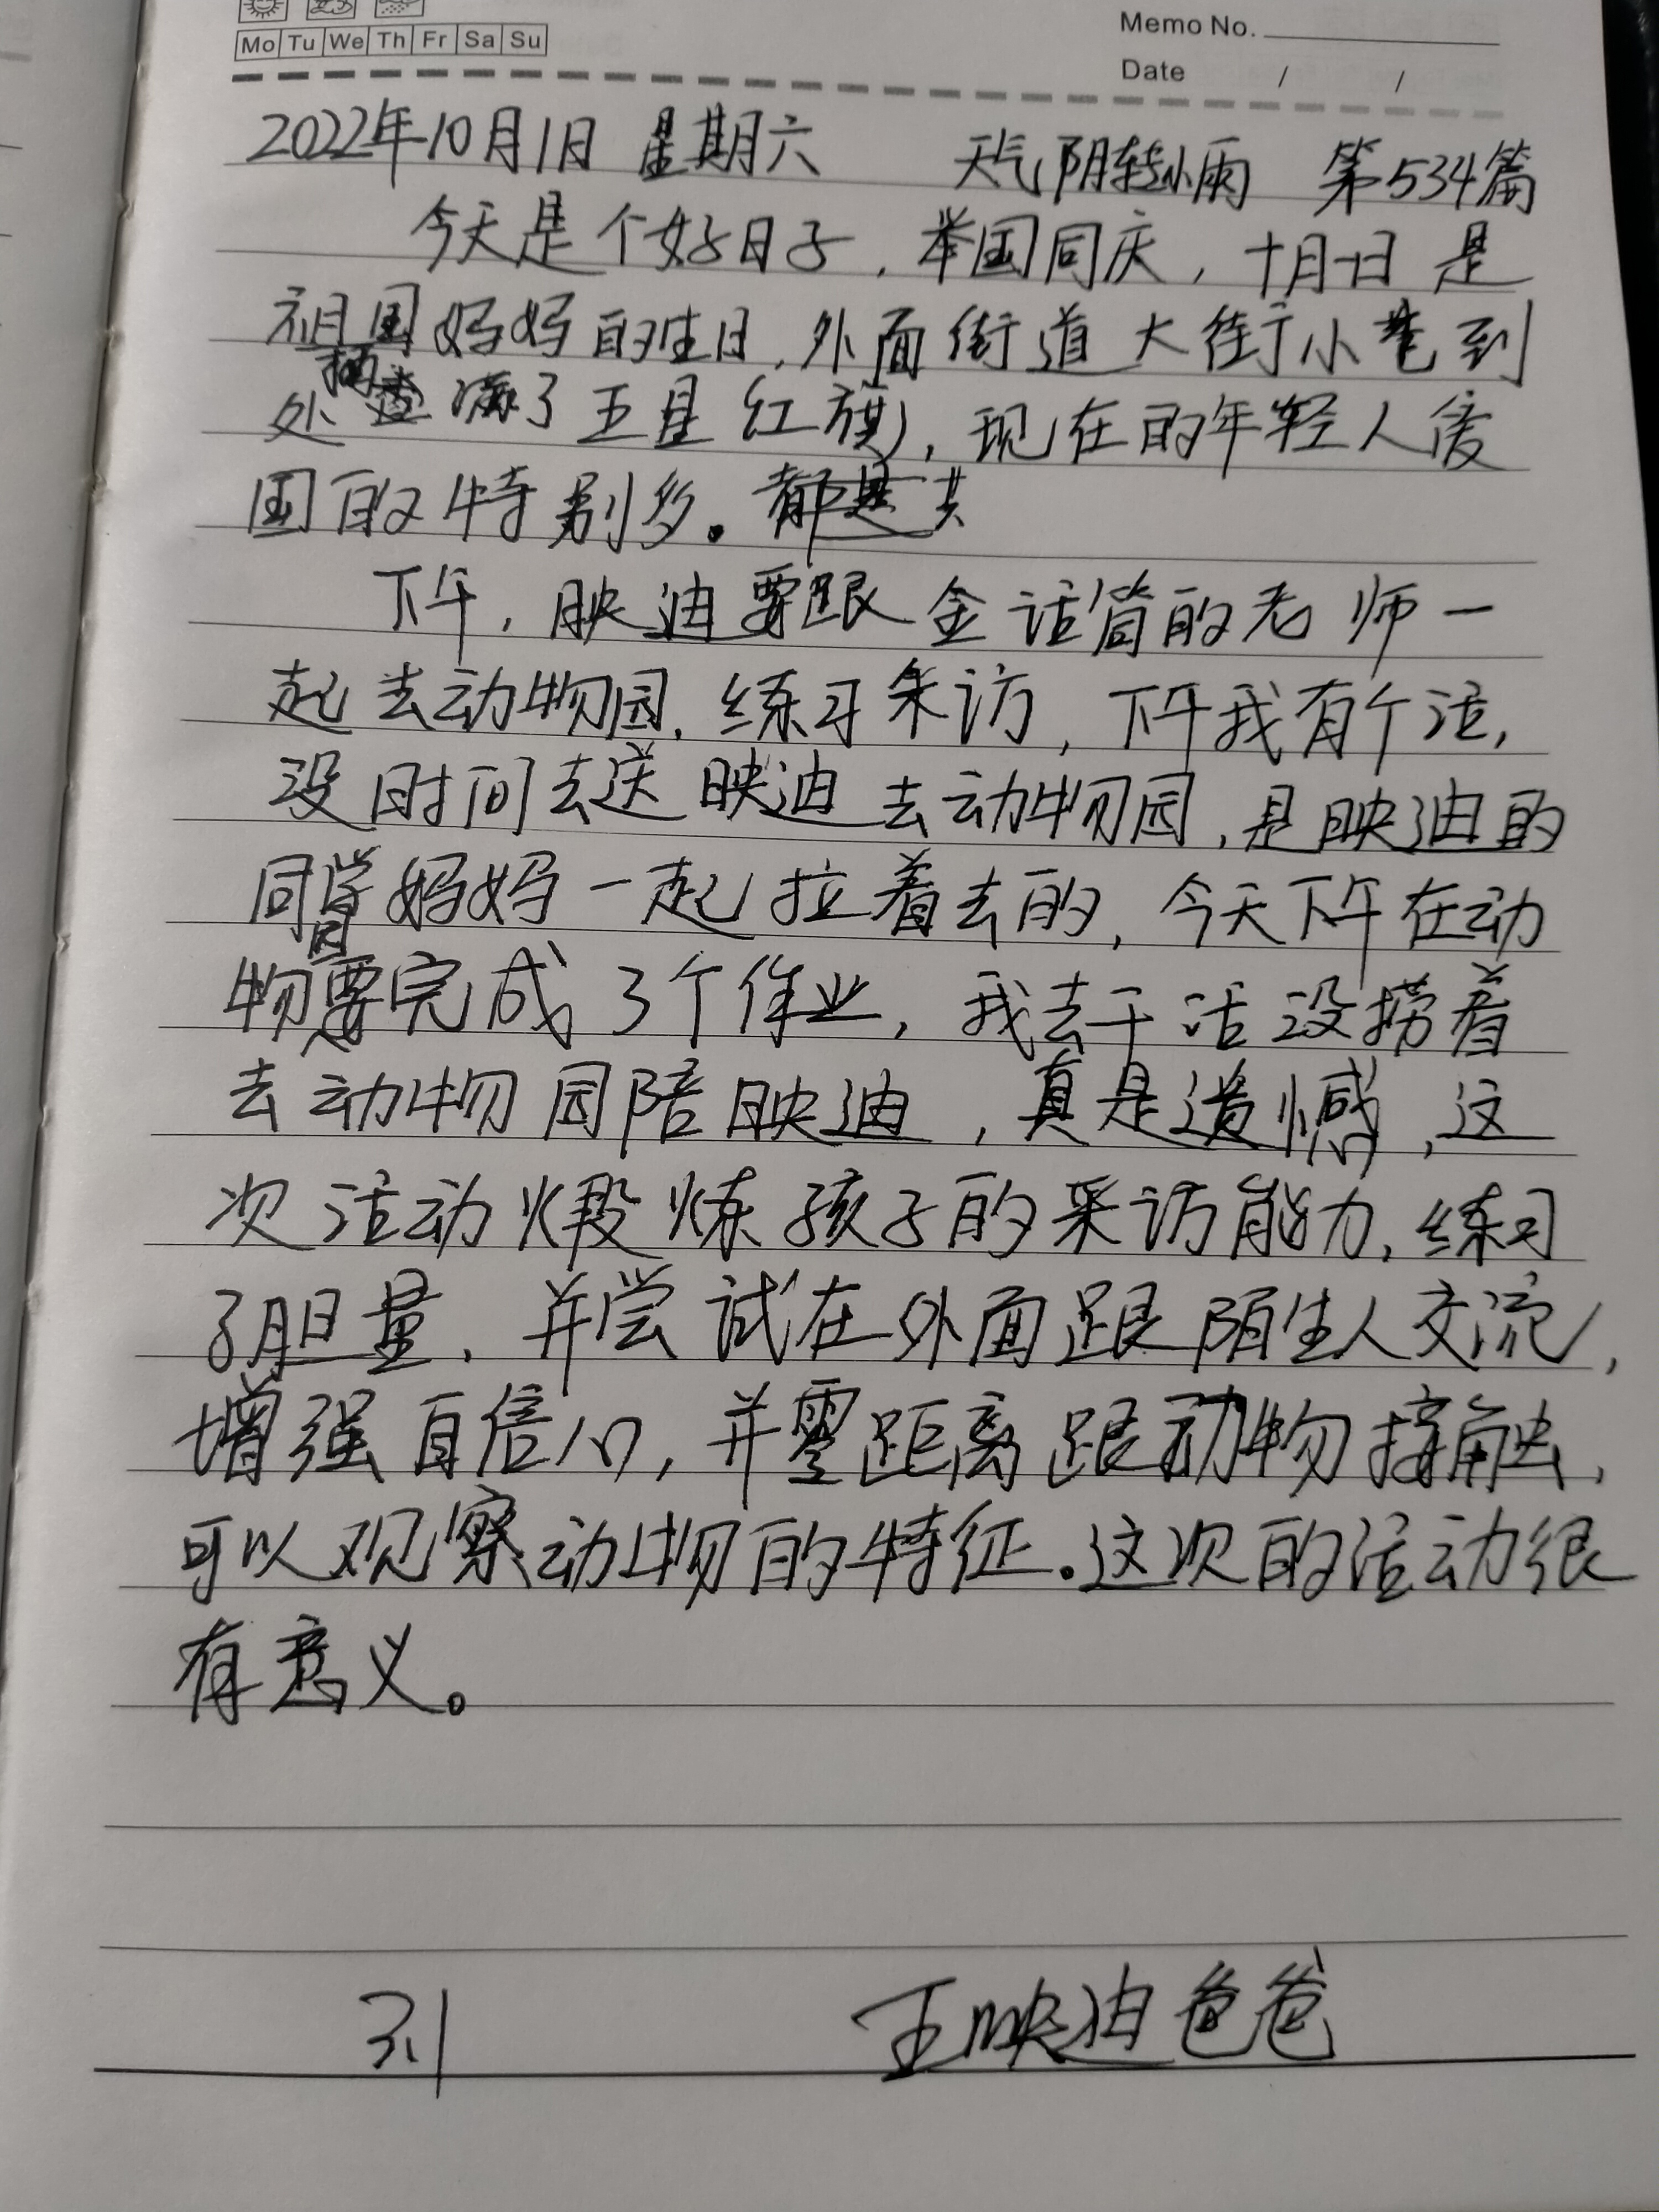 Mo Tu We Th Fr Sa Su
Memo No.
Date / /
2022年10月1日 星期六 天气阴转小雨 第534篇
今天是个好日子,举国同庆,十月一日是
祖国妈妈的生日,外面街道大街小巷到
处 满了五星红旗,现在的年轻人爱
国的特别多。都是共
下午,映迪要跟金话筒的老师一
起去动物园,练习采访,下午我有个活,
没时间去送映迪去动物园,是映迪的
同学妈妈一起拉着去的,今天下午在动
物园要完成3个作业,我去干活没捞着
去动物园陪映迪,真是遗憾,这
次活动煅炼孩子的采访能力,练习
了胆量,并尝试在外面跟陌生人交流,
增强自信心,并零距离跟动物接触,
可以观察动物的特征。这次的活动很
有意义。
王映迪爸爸